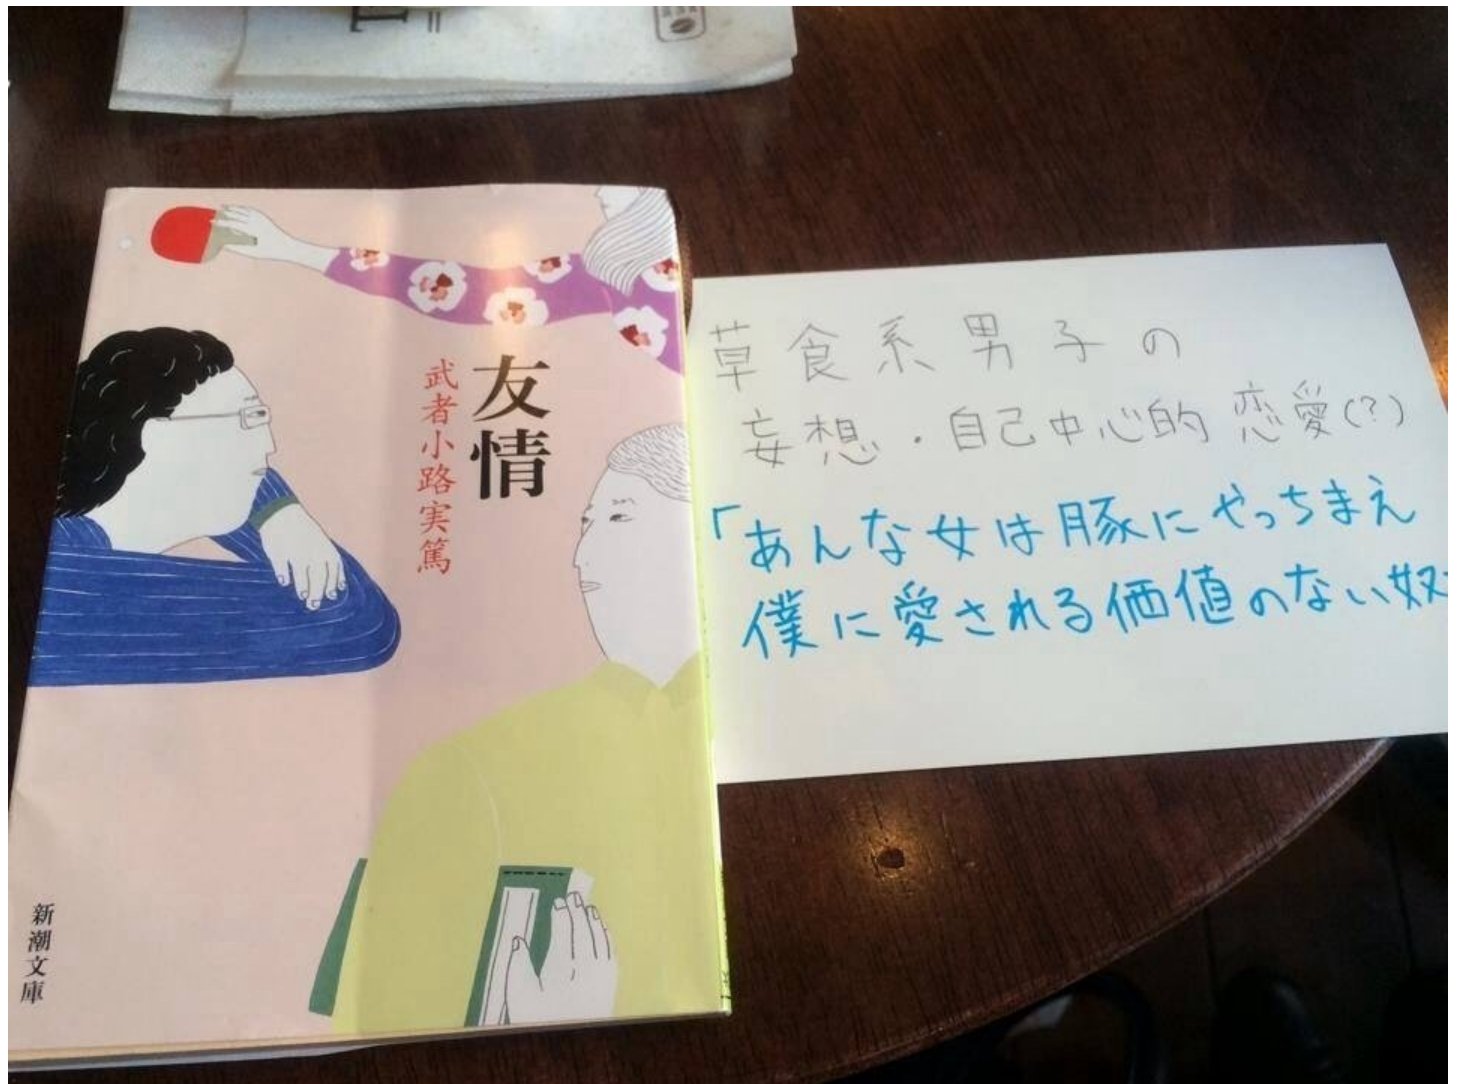 友情
武者小路実篤
新潮文庫
草食系男子の
妄想・自己中心的恋愛(?)
「あんな女は豚にやっちまえ
僕に愛される価値のない奴